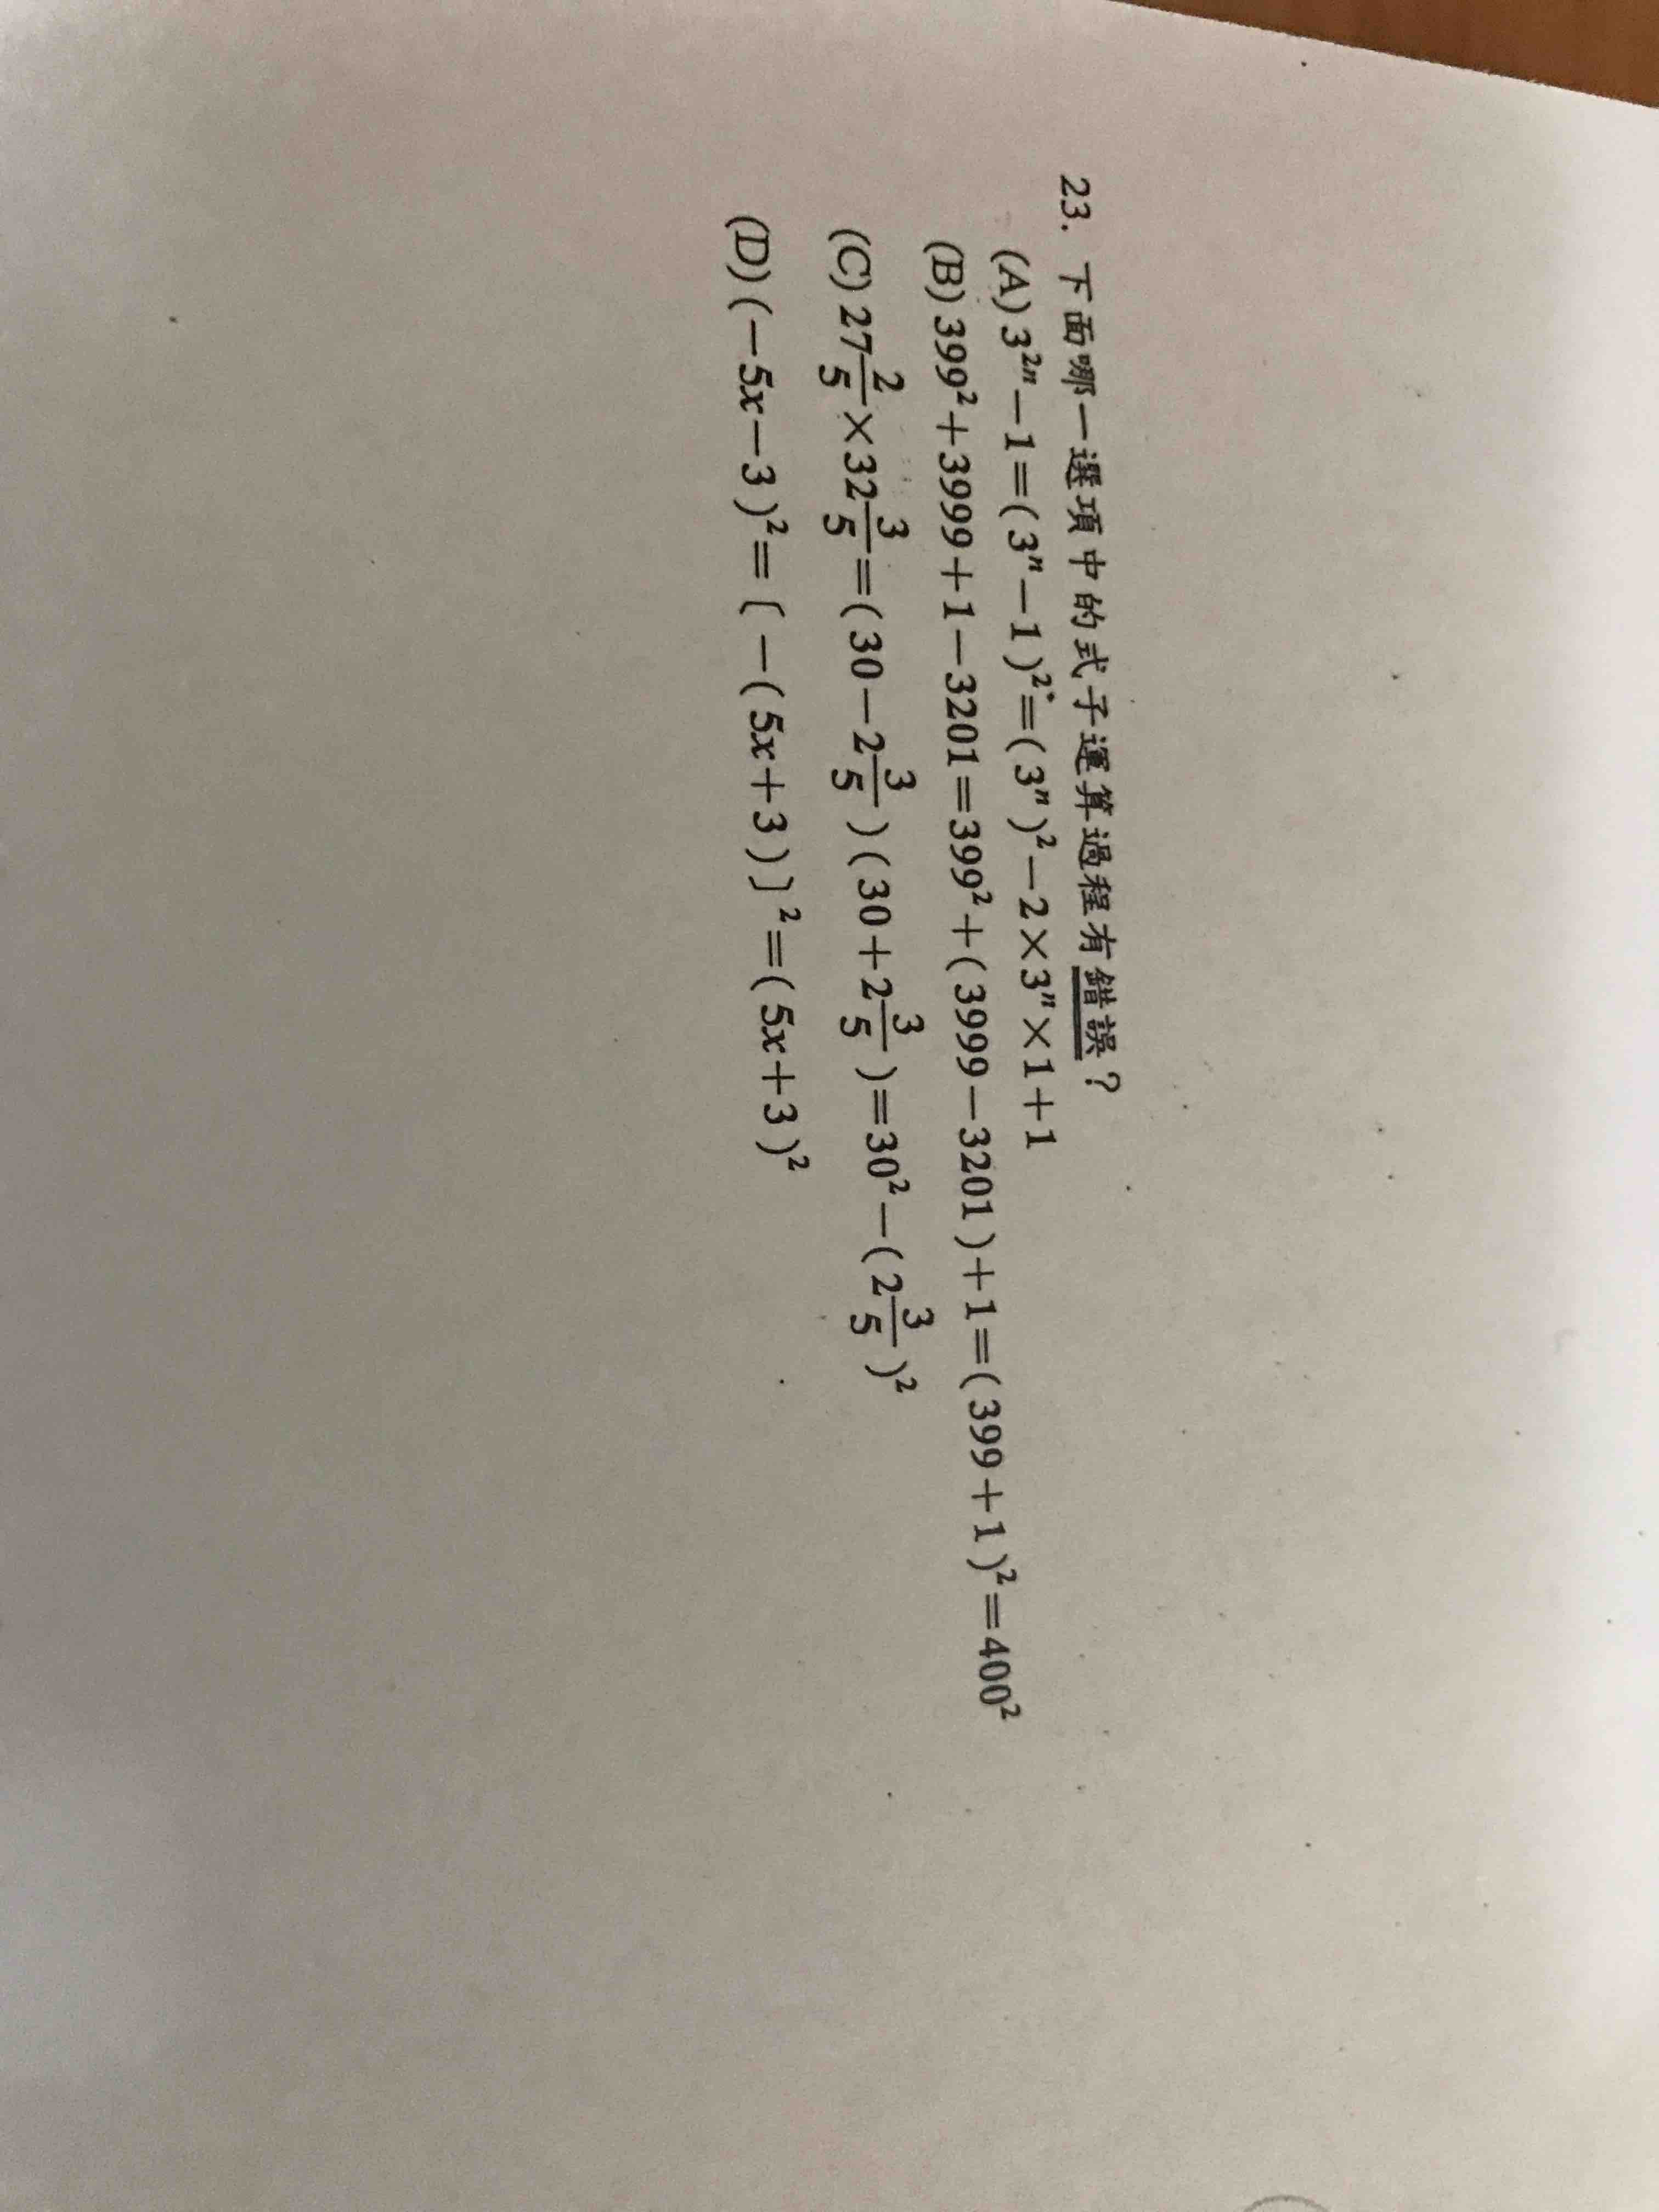 23. 下面哪一選項中的式子運算過程有錯誤？
(A) 3²ⁿ－1＝(3ⁿ－1)²＝(3ⁿ)²－2×3ⁿ×1＋1
(B) 399²＋3999＋1－3201＝399²＋(3999－3201)＋1＝(399＋1)²＝400²
(C) 27 2/5×32 3/5＝(30－2 3/5)(30＋2 3/5)＝30²－(2 3/5)²
(D) (－5x－3)²＝〔－(5x＋3)〕²＝(5x＋3)²